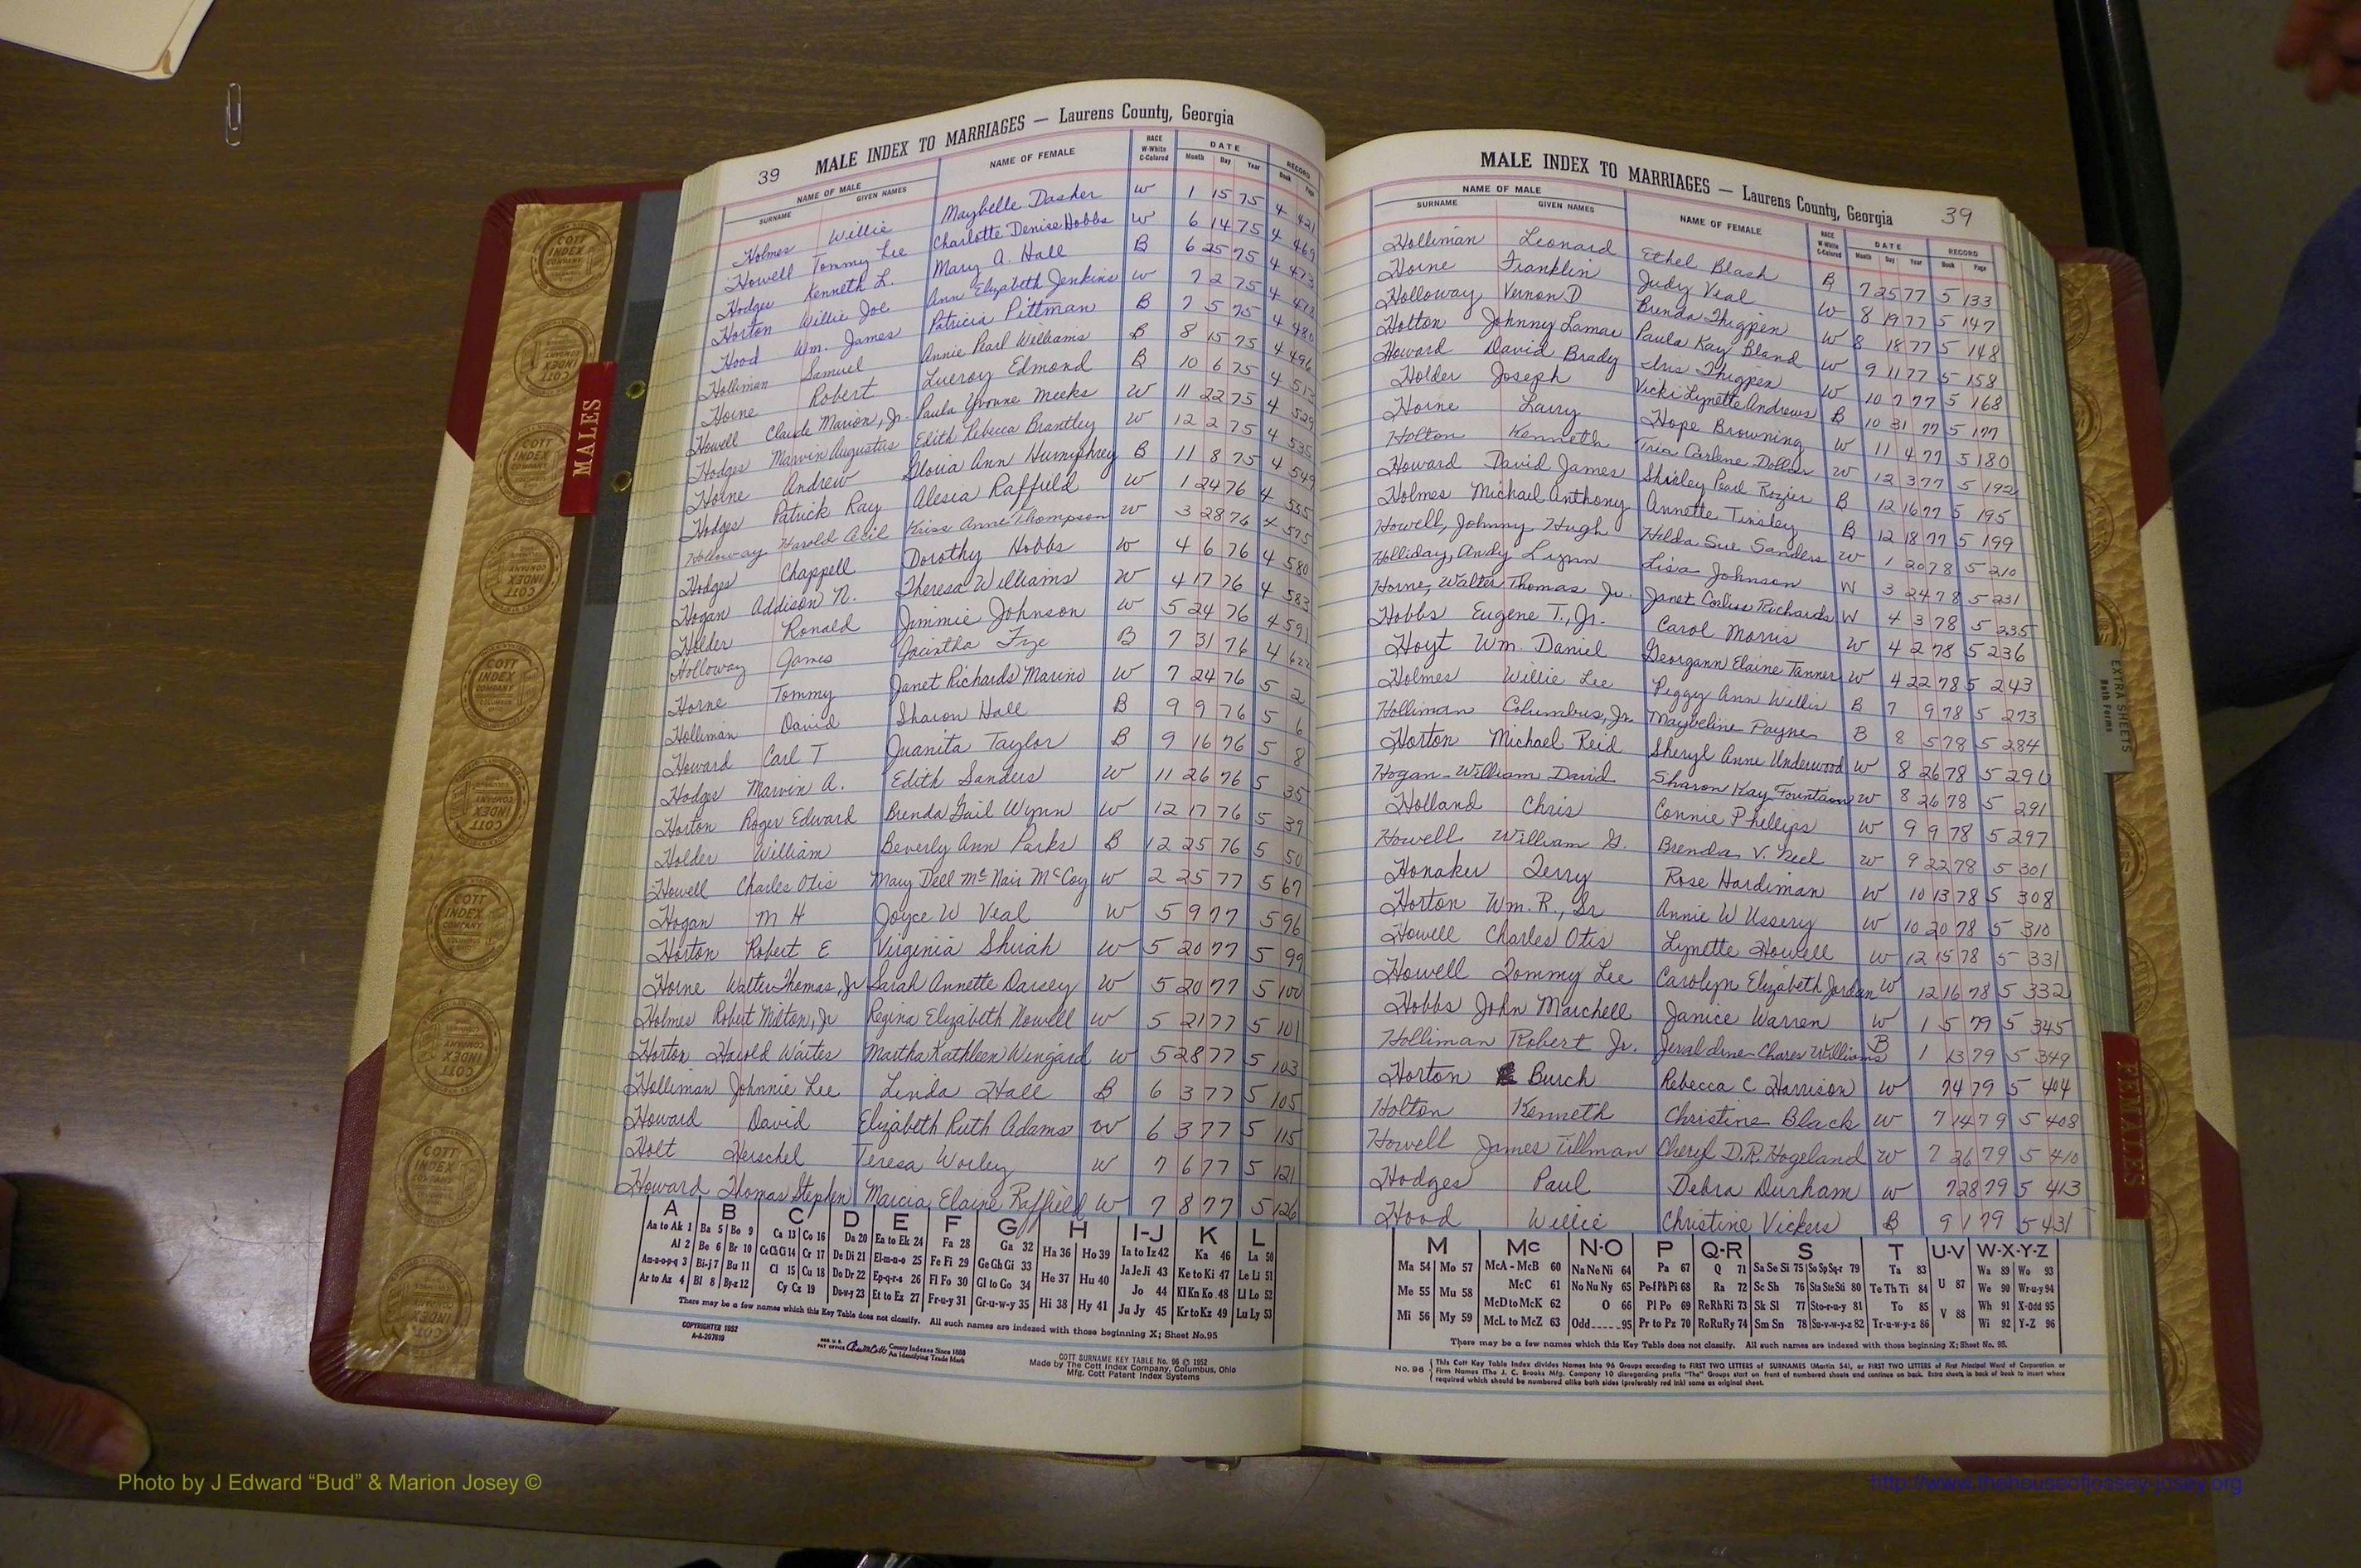 39 MALE INDEX TO MARRIAGES — Laurens County, Georgia
NAME OF MALE NAME OF FEMALE RACE W-White C-Colored DATE RECORD
SURNAME GIVEN NAMES Month Day Year Book Page
Holmes Willie Maybelle Dasher W 1 15 75 4 421
Howell Tommy Lee Charlotte Denise Hobbs W 6 14 75 4 469
Hodges Kenneth L. Mary A. Hall B 6 25 75 4 473
Horton Willie Joe Ann Elizabeth Jenkins W 7 2 75 4 478
Hood Wm. James Patricia Pittman B 7 5 75 4 480
Holliman Samuel Annie Pearl Williams B 8 15 75 4 496
Horne Robert Lueroy Edmond B 10 6 75 4 513
Howell Claude Marion, Jr. Paula Yvonne Meeks W 11 22 75 4 529
Hodges Marvin Augustus Edith Rebecca Brantley W 12 2 75 4 535
Horne Andrew Gloria Ann Humphrey B 11 8 75 4 549
Hodges Patrick Ray Alesia Raffield W 1 24 76 4 555
Holloway Harold Cecil Anne Thompson W 3 28 76 4 575
Hodges Chappell Dorothy Hobbs W 4 6 76 4 580
Hogan Addison N. Theresa Williams W 4 17 76 4 583
Holder Ronald Jimmie Johnson W 5 24 76 4 591
Holloway James Jacintha B 7 31 76 4 622
Horne Tommy Janet Richards Marino W 7 24 76 5 2
Holliman David Sharon Hall B 9 9 76 5 6
Howard Carl T Juanita Taylor B 9 16 76 5 8
Hodges Marvin A. Edith Sanders W 11 26 76 5 35
Horton Roger Edward Brenda Gail Wynn W 12 17 76 5 39
Holder William Beverly Ann Parks B 12 25 76 5 50
Howell Charles Otis Mary Dell McNair McCoy W 2 25 77 5 67
Hogan M H Joyce W Veal W 5 9 77 5 96
Horton Robert E Virginia Shirah W 5 20 77 5 99
Horne Walter Thomas, Jr Sarah Annette Darsey W 5 20 77 5 100
Holmes Robert Milton, Jr Regina Elizabeth Nowell W 5 21 77 5 101
Horton Harold Waites Martha Kathleen Wengard W 5 28 77 5 103
Holliman Johnnie Lee Linda Hall B 6 3 77 5 105
Howard David Elizabeth Ruth Adams W 6 3 77 5 115
Holt Herschel Teresa Worley W 7 6 77 5 121
Howard Thomas Stephen Marcia Elaine Raffield W 7 8 77 5 126
A B C D E F G H I-J K L
Aa to Ak 1 Ba 5 Bo 9 Ca 13 Co 16 Da 20 Ea to Ek 24 Fa 28 Ga 32 Ha 36 Ho 39 Ia to Iz 42 Ka 46 La 50
Al 2 Be 6 Br 10 Ce Ch Ci 14 Cr 17 De Di 21 El-m-n-o 25 Fe Fi 29 Ge Gh Gi 33 He 37 Hu 40 Ja Je Ji 43 Ke to Ki 47 Le Li 51
An-o-p-q 3 Bi-j 7 Bu 11 Cl 15 Cu 18 Do Dr 22 Ep-q-r-s 26 Fl Fo 30 Gl to Go 34 Hi 38 Hy 41 Jo 44 Kl Kn Ko 48 Ll Lo 52
Ar to Az 4 Bl 8 By-z 12 Cy Cz 19 Du-w-y 23 Et to Ez 27 Fr-u-y 31 Gr-u-w-y 35 Ju Jy 45 Kr to Kz 49 Lu Ly 53
There may be a few names which this Key Table does not classify. All such names are indexed with those beginning X; Sheet No.95
COPYRIGHTED 1952
A-A-207619
County Indexes Since 1888
An Identifying Trade Mark
COTT SURNAME KEY TABLE No. 96 © 1952
Made by The Cott Index Company, Columbus, Ohio
Mfg. Cott Patent Index Systems
MALE INDEX TO MARRIAGES — Laurens County, Georgia 39
NAME OF MALE NAME OF FEMALE RACE W-White C-Colored DATE RECORD
SURNAME GIVEN NAMES Month Day Year Book Page
Holliman Leonard Ethel Blash B 7 25 77 5 133
Horne Franklin Judy Veal W 8 19 77 5 147
Holloway Vernon D Brenda Thigpen W 8 18 77 5 148
Holton Johnny Lamar Paula Kay Bland W 9 11 77 5 158
Howard David Brady Iris Thigpen W 10 7 77 5 168
Holder Joseph Vicki Lynette Andrews B 10 31 77 5 177
Horne Larry Hope Browning W 11 4 77 5 180
Holton Kenneth Tria Carlene Dollar W 12 3 77 5 192
Howard David James Shirley Pearl Rozier B 12 16 77 5 195
Holmes Michael Anthony Annette Tinsley B 12 18 77 5 199
Howell, Johnny Hugh Hilda Sue Sanders W 1 20 78 5 210
Holliday, Andy Lynn Lisa Johnson W 3 24 78 5 231
Horne, Walter Thomas Jr. Janet Corliss Richards W 4 3 78 5 235
Hobbs Eugene T., Jr. Carol Morris W 4 2 78 5 236
Hoyt Wm. Daniel Georgann Elaine Tanner W 4 22 78 5 243
Holmes Willie Lee Peggy Ann Willis B 7 9 78 5 273
Holliman Columbus, Jr. Maybeline Payne B 8 5 78 5 284
Horton Michael Reid Sheryl Anne Underwood W 8 26 78 5 290
Hogan William David Sharon Kay Fountain W 8 26 78 5 291
Holland Chris Connie Phillips W 9 9 78 5 297
Howell William G. Brenda V. Neel W 9 22 78 5 301
Honaker Terry Rose Hardiman W 10 13 78 5 308
Horton Wm. R., Sr Annie W Ussery W 10 20 78 5 310
Howell Charles Otis Lynette Howell W 12 15 78 5 331
Howell Tommy Lee Carolyn Elizabeth Jordan W 12 16 78 5 332
Hobbs John Marchell Janice Warren W 1 5 79 5 345
Holliman Robert Jr. Jeraldine Chares Williams B 1 13 79 5 349
Horton Burch Rebecca C Harrison W 7 4 79 5 404
Holton Kenneth Christine Black W 7 14 79 5 408
Howell James Tillman Cheryl D.R. Hogeland W 7 26 79 5 410
Hodges Paul Debra Durham W 7 28 79 5 413
Hood Willie Christine Vickers B 9 1 79 5 431
M Mc N-O P Q-R S T U-V W-X-Y-Z
Ma 54 Mo 57 McA - McB 60 Na Ne Ni 64 Pa 67 Q 71 Sa Se Si 75 So Sp Sq-r 79 Ta 83 U 87 Wa 89 Wo 93
Me 55 Mu 58 McC 61 No Nu Ny 65 Pe-f Ph Pi 68 Ra 72 Sc Sh 76 Sta Ste Sti 80 Te Th Ti 84 We 90 Wr-u-y 94
Mi 56 My 59 McD to McK 62 O 66 Pl Po 69 Re Rh Ri 73 Sk Sl 77 Sto-r-u-y 81 To 85 V 88 Wh 91 X-Odd 95
McL to McZ 63 Odd.....95 Pr to Pz 70 Ro Ru Ry 74 Sm Sn 78 Su-v-w-y-z 82 Tr-u-w-y-z 86 Wi 92 Y-Z 96
There may be a few names which this Key Table does not classify. All such names are indexed with those beginning X; Sheet No. 95.
No. 96 This Cott Key Table Index divides Names into 96 Groups according to FIRST TWO LETTERS of SURNAMES (Martin 54), or FIRST TWO LETTERS of First Principal Word of Corporation or
Firm Names (The J. C. Brooks Mfg. Company 10 disregarding prefix "The" Groups start on front of numbered sheets and continue on back. Extra sheets in back of book to insert where
required which should be numbered alike both sides (preferably red ink) same as original sheet.
MALES
FEMALES
EXTRA SHEETS
Both Forms
COTT INDEX COMPANY
Photo by J Edward “Bud” & Marion Josey ©
http://www.thehouseofjossey-josey.org